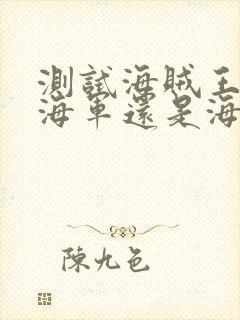 測試海賊王
海軍還是海
陳九色